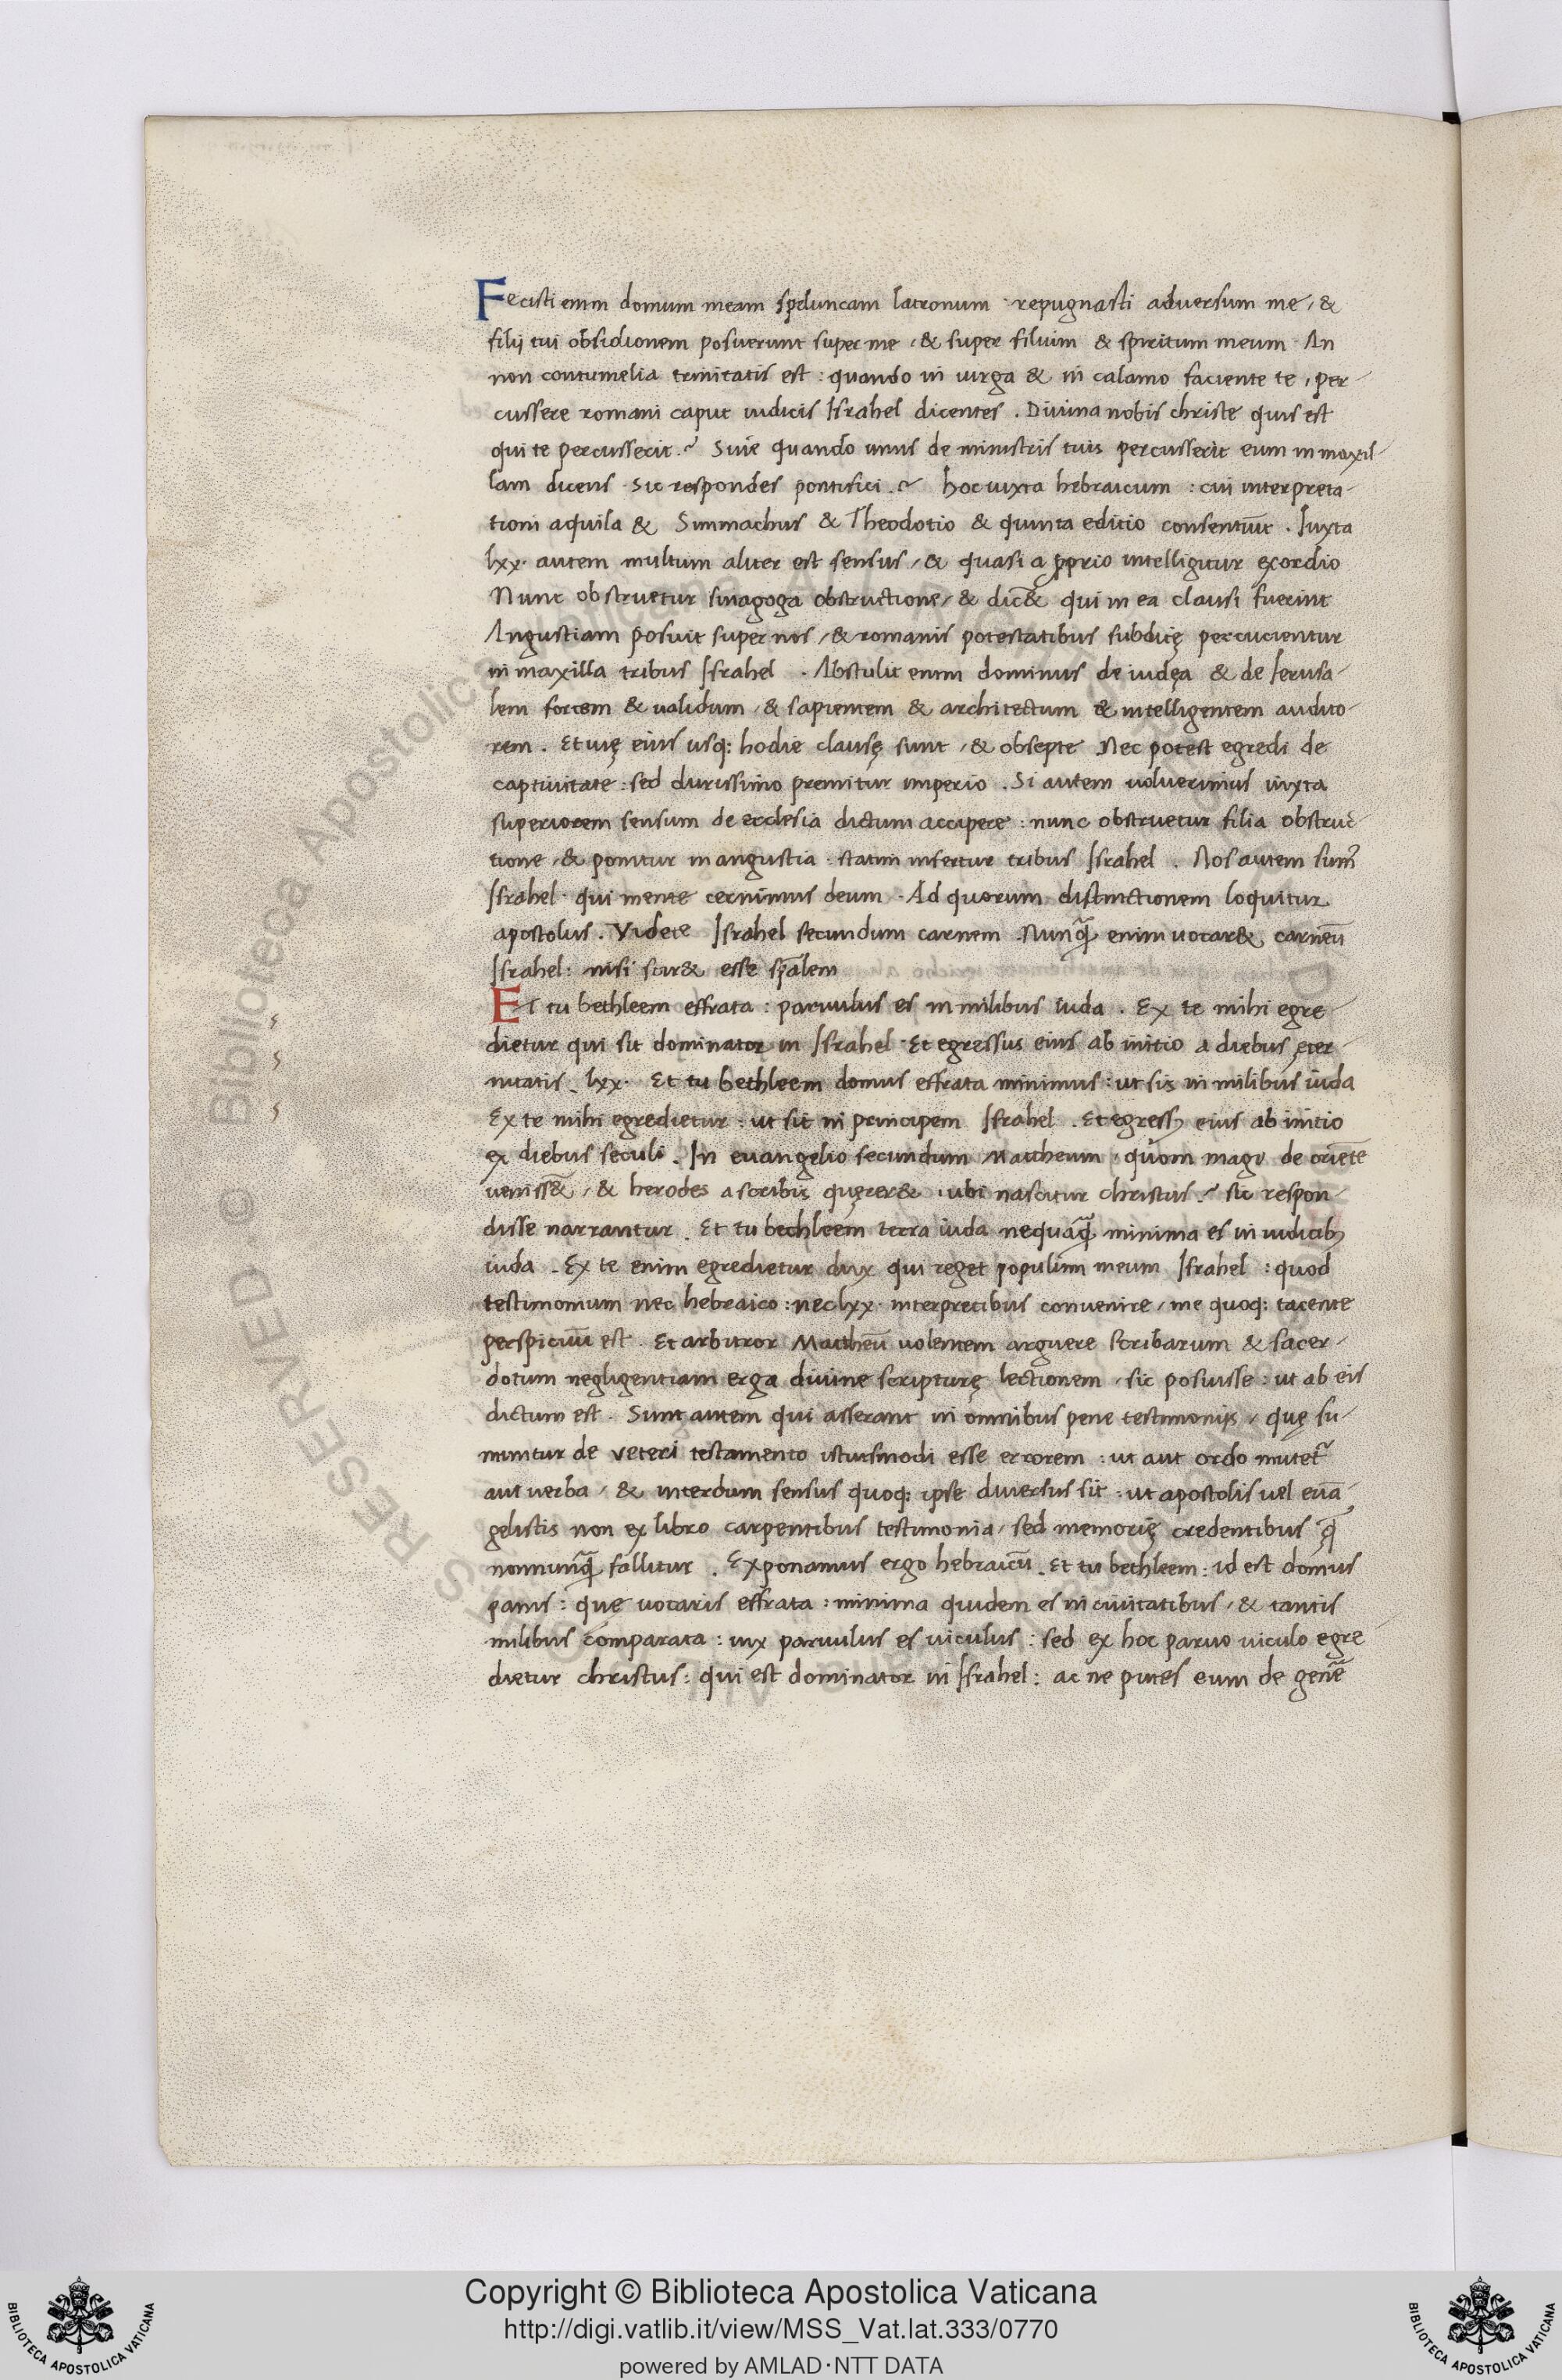 Fecisti enim domum meam speluncam latronum · repugnasti adversum me, &
filij tui obsidionem posuerunt super me, & super filium & spiritum meum · An
non contumelia trinitatis est : quando in virga & in calamo faciente te, per-
cussere romani caput iudicis Israhel dicentes . Divina nobis christe quis est
qui te percusserit .~ Sive quando unus de ministris tuis percusserit eum in maxil-
lam dicens · Sic respondes pontifici .~ hoc iuxta hebraicum : cui interpreta-
tioni aquila & Simmachus & Theodotio & quinta editio consentiūt . Iuxta
lxx · autem multum aliter est sensus, & quasi a ꝓprio intelligitur exordio
Nunc obstruetur sinagoga obstructione, & dic& qui in ea clausi fuerint
Angustiam posuit super nos, & romanis potestatibus subditę percucientur
in maxilla tribus Israhel . Abstulit enim dominus de iudęa & de Ierusa-
lem fortem & validum, & sapientem & architectum & intelligentem audito-
rem . Et uię eius usq; hodie clausę sunt, & obsepte Nec potest egredi de
captivitate : sed durissimo premitur imperio . Si autem voluerimus iuxta
superiorem sensum de ecclesia dictum accipere : nunc obstruetur filia obstruc-
tione, & ponitur in angustia · statim infertur tribus Israhel . Nos autem sum⁹
Israhel · qui mente cernimus deum . Ad quorum distinctionem loquitur
apostolus . Videte Israhel secundum carnem . Nunq̃ enim vocar& carneū
Israhel : nisi scir& esse sp̄alem
Et tu bethleem effrata : parvulus es in milibus iuda . Ex te mihi egre-
dietur qui sit dominator in Israhel · Et egressus eius ab initio a diebus ęter-
nitatis . lxx · Et tu bethleem domus effrata minimus : ut sis in milibus iuda
Ex te mihi egredietur : ut sit in principem Israhel . Et egress⁹ eius ab initio
ex diebus seculi . In evangelio secundum Mattheum, quom magi de oriēte
veniss&, & herodes a scribis quęrer& : ubi nascitur christus .~ sic respon-
disse narrantur . Et tu bethleem terra iuda nequaq̃ minima es in iudicib⁹
iuda . Ex te enim egredietur dux qui reget populum meum Israhel : quod
testimonium nec hebraico : nec lxx · interpretibus convenire, me quoq; tacente
perspicuū est . Et arbitror Mattheū volentem arguere scribarum & sacer-
dotum negligentiam erga divine scripturę lectionem, sic posuisse : ut ab eis
dictum est . Sunt autem qui asserant in omnibus pene testimonijs, quę su-
muntur de veteri testamento istiusmodi esse errorem : ut aut ordo mutet᷑
aut verba, & interdum sensus quoq; ipse diversus sit · ut apostolis vel evā-
gelistis non ex libro carpentibus testimonia, sed memorię credentibus q̃
nonnunq̃ fallitur . Exponamus ergo hebraicū . Et tu bethleem : id est domus
panis : quę vocaris effrata : minima quidem es in civitatibus, & tantis
milibus comparata : vix parvulus es viculus : sed ex hoc parvo viculo egre-
dietur christus : qui est dominator in Israhel : ac ne putes eum de gen̄e
Copyright © Biblioteca Apostolica Vaticana
http://digi.vatlib.it/view/MSS_Vat.lat.333/0770
powered by AMLAD·NTT DATA
BIBLIOTECA APOSTOLICA VATICANA
BIBLIOTECA APOSTOLICA VATICANA